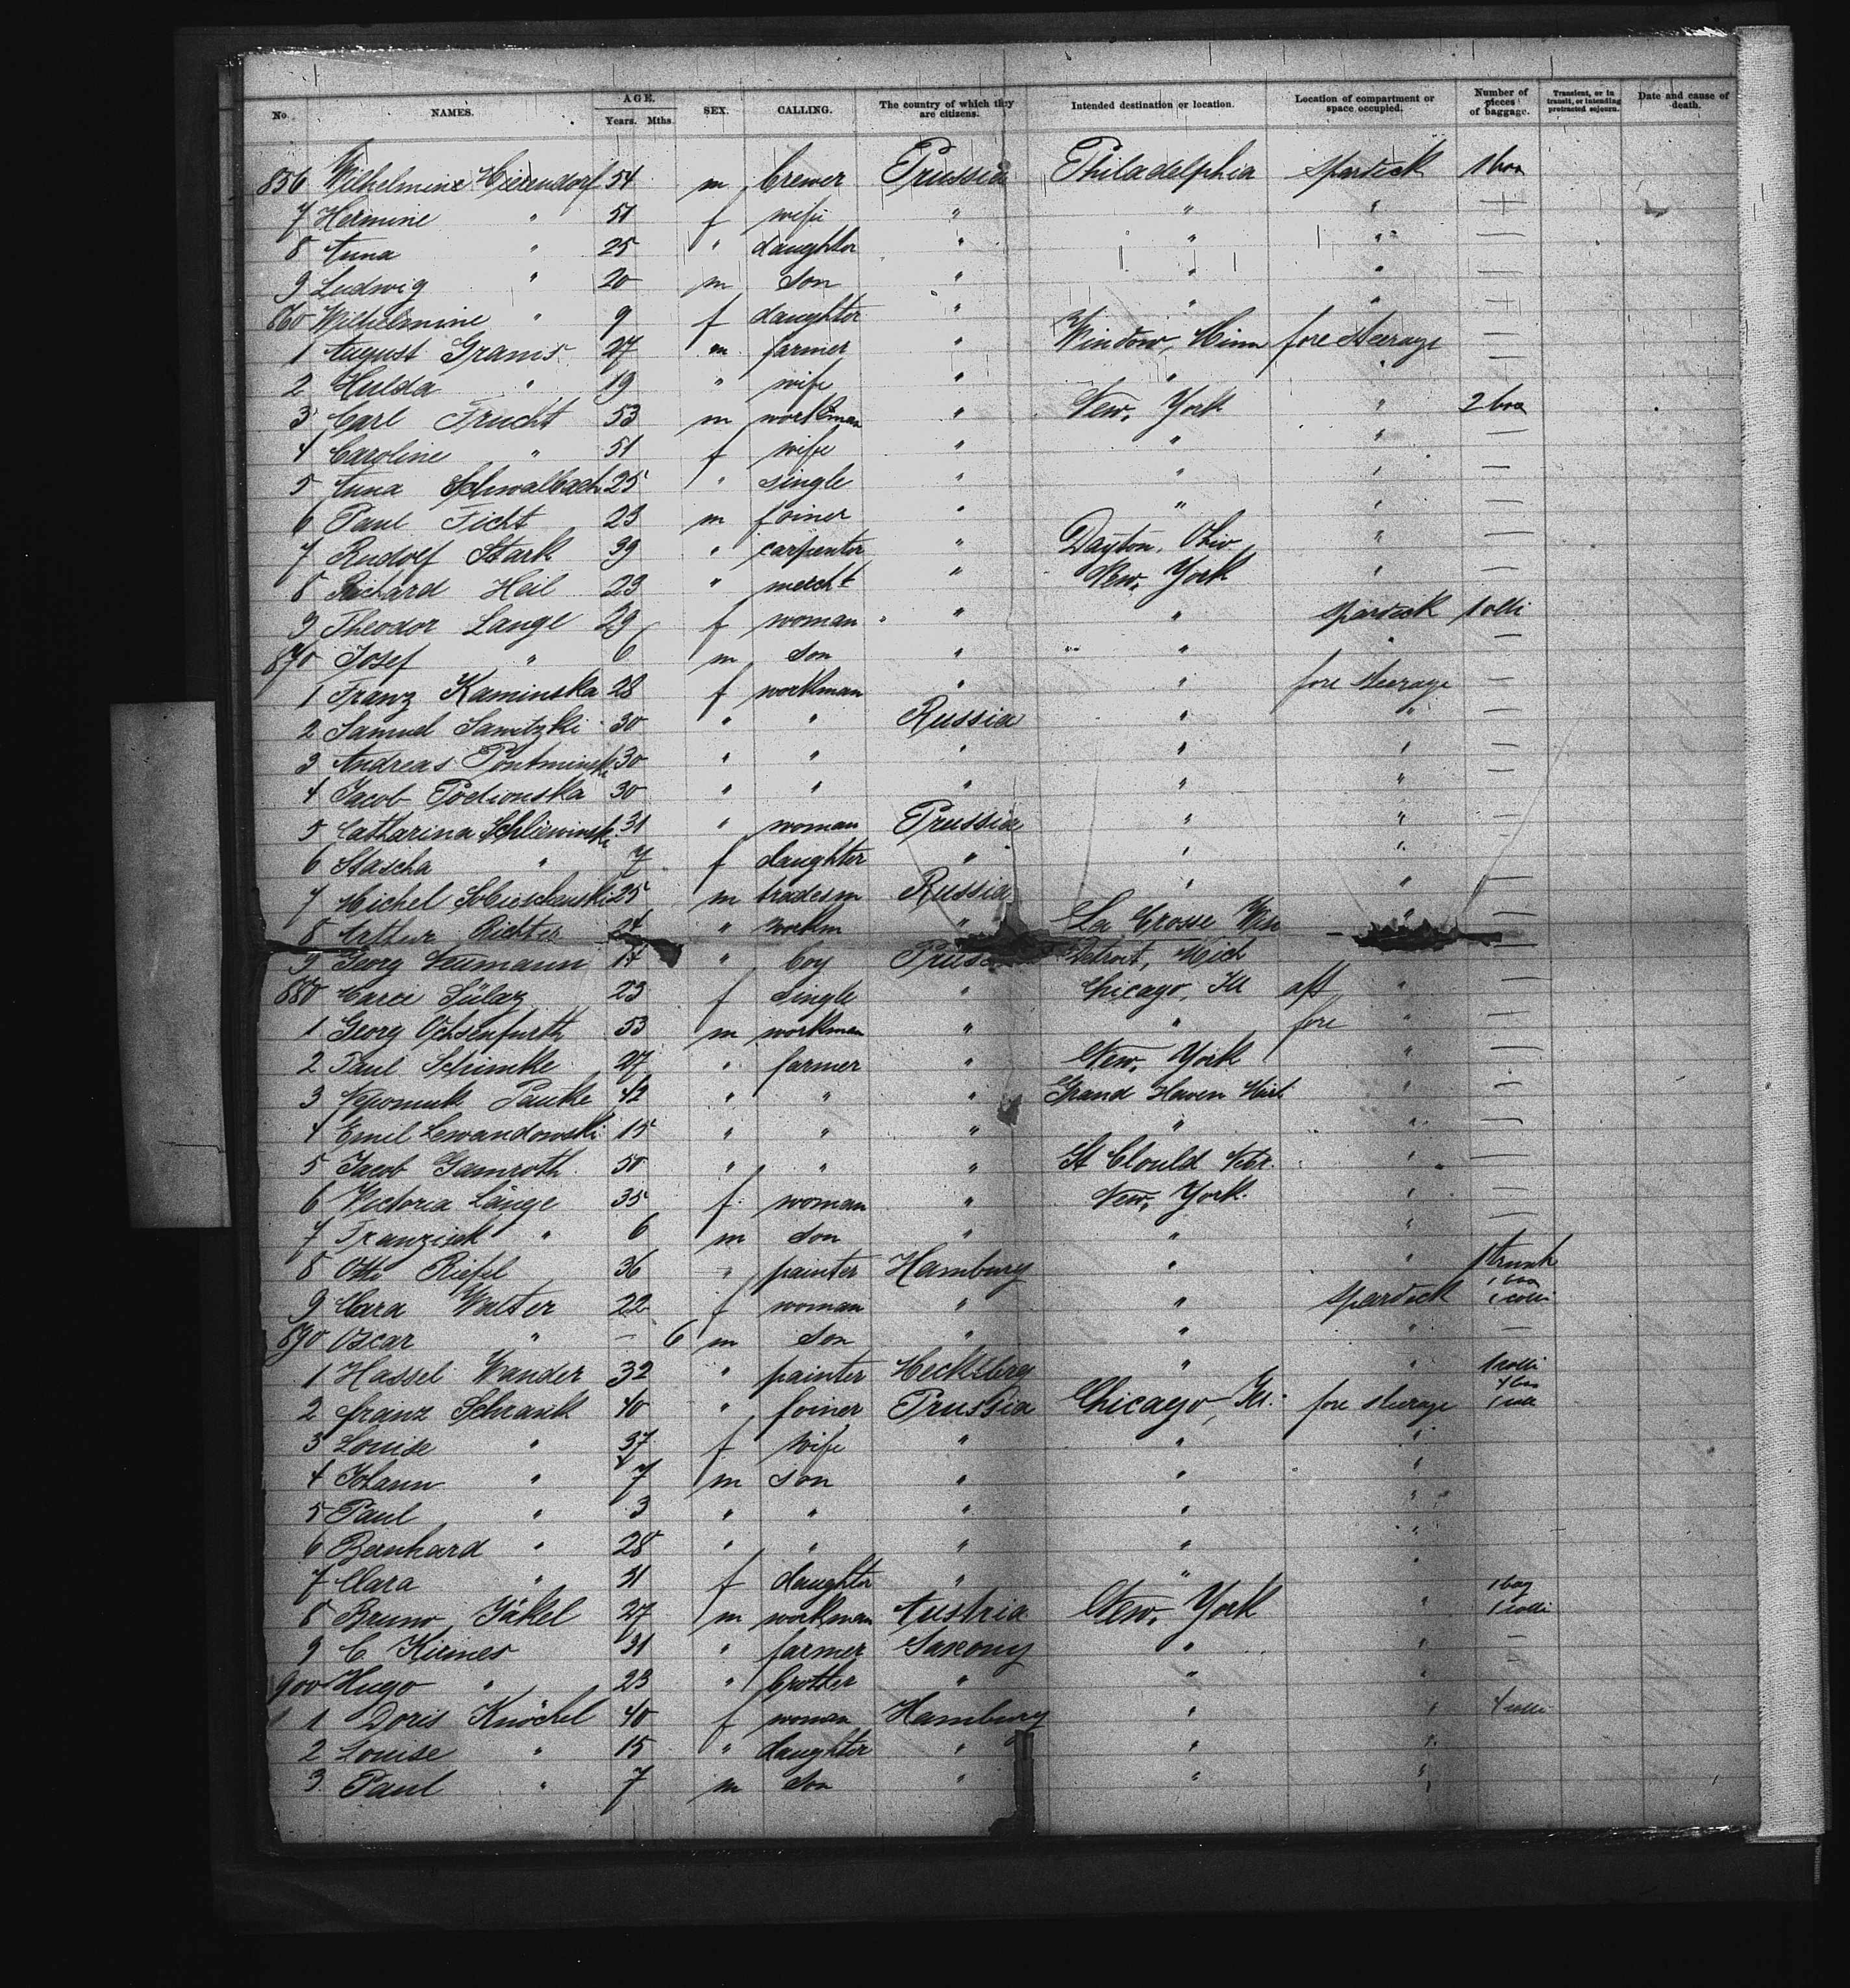 No. NAMES. AGE. Years. Mths. SEX. CALLING. The country of which they are citizens. Intended destination or location. Location of compartment or space occupied. Number of pieces of baggage. Transient, or in transit, or intending protracted sojourn. Date and cause of death.
856 Wilhelmine Hierendorf 54 m brewer Prussia Philadelphia spardeck 1 box
7 Hermine " 51 f wife " " " —
8 Anna " 25 " daughter " " " —
9 Ludwig " 20 m son " " " —
860 Wilhelmine " 9 f daughter " " " —
1 August Grams 27 m farmer " Window, Minn fore steerage —
2 Hulda " 19 " wife " " " —
3 Carl Frucht 53 m workman " New York " 2 box
4 Caroline " 51 f wife " " " —
5 Anna Schwalbach 25 " single " " " —
6 Paul Ficht 23 m joiner " " " —
7 Rudolf Stark 39 " carpenter " Dayton, Ohio " —
8 Richard Heil 23 " mercht " New York " —
9 Theodor Lange 29 f woman " " spardeck 1 colli
870 Josef " 6 m son " " " —
1 Franz Kaminska 28 f workman " " fore steerage —
2 Samuel Sanitzki 30 " " Russia " " —
3 Andreas Pontminski 30 " " " " " —
4 Jacob Podionska 30 " " " " " —
5 Catharina Schliewinski 31 " woman Prussia " " —
6 Stascha " 7 f daughter " " " —
7 Michel 25 m tradesm Russia " " —
8 Arthur Richter 24 " workm " La Crosse Wsn " —
9 Georg Neumann 17 " boy Pruss Detroit, Mich —
880 23 f single " Chicago, Ill aft " —
1 Georg Ochsenfurth 53 m workman " " fore " —
2 Paul Schimke 27 " farmer " New York " —
3 Nepomuk Pauke 42 " " " Grand Haven " —
4 Emil Lewandowski 15 " " " " " —
5 Jacob Gamroth 50 " " " St Clould " —
6 Victoria Lange 35 f woman " New York " —
7 Franzisek " 6 m son " " " —
8 Otto Riefel 36 " painter Hamburg " " 1 trunk
9 Clara Walter 22 f woman " " spardeck 1 box 1 colli
890 Oscar " — 6 m son " " " —
1 Hassel Wander 32 " painter Mecklberg " " 1 colli
2 Franz Schrank 40 " joiner Prussia Chicago, Ill. fore steerage
3 Louise " 37 f wife " " "
4 Johann " 7 m son " " "
5 Paul " 3 " " " " "
6 Bernhard " 28 " " " " "
7 Clara " 31 f daughter " " "
8 Bruno Jäkel 27 m workman Austria New York " 1 bag 1 colli
9 C. Kirmes 31 " farmer Saxony " " —
900 Hugo " 23 " brother " " "
1 Doris Knöchel 40 f woman Hamburg " " 4 colli
2 Louise " 15 " daughter " " "
3 Paul " 7 m son " " "